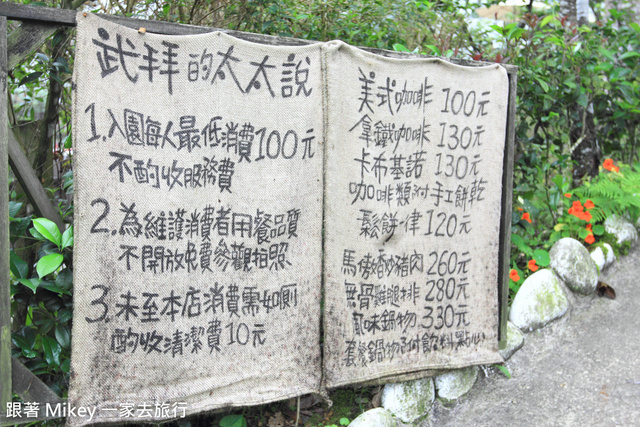 武拜的太太說
1. 入園每人最低消費100元
不酌收服務費
2. 為維護消費者用餐品質
不開放免費參觀拍照、
3. 未至本店消費需如廁
酌收清潔費10元
美式咖啡 100元
拿鐵咖啡 130元
卡布基諾 130元
咖啡類附手工餅乾
鬆餅一律120元
馬告香炒豬肉 260元
無骨雞腿排 280元
風味鍋物 330元
套餐鍋物附飲料點心
跟著 Mikey 一家去旅行